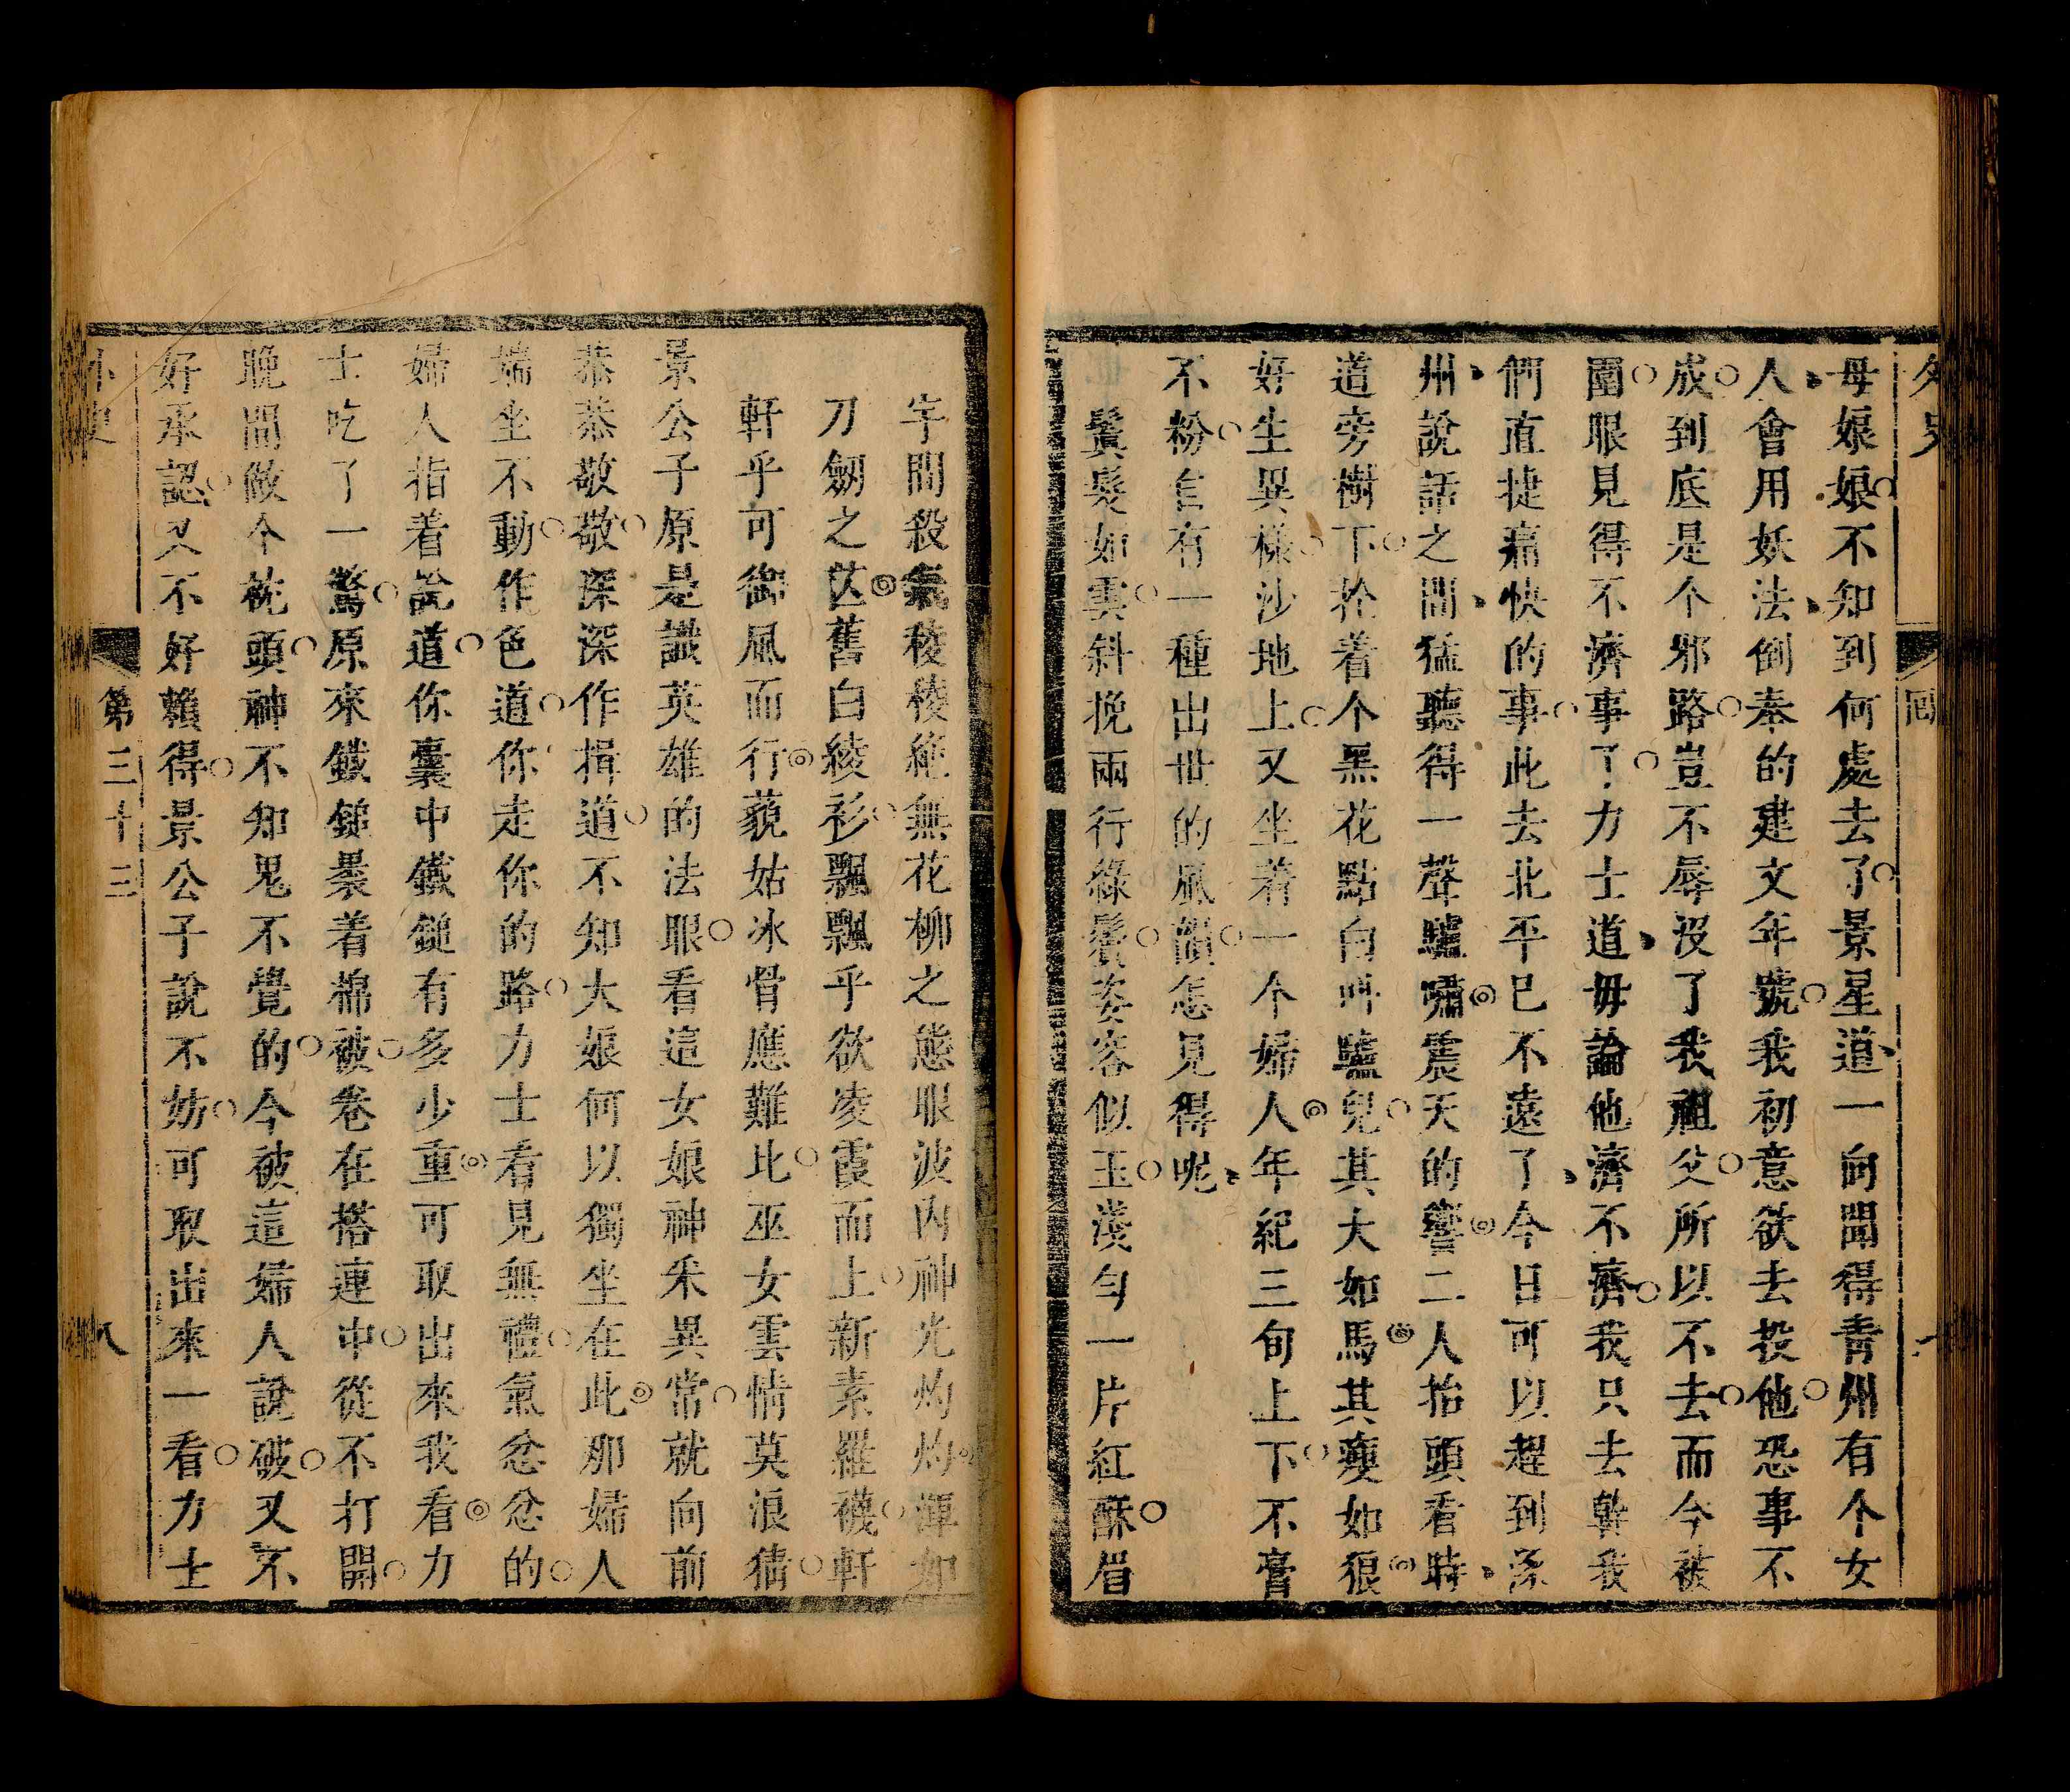 母娘娘不知到何處去了景星道一向聞得青州有个女
人會用妖法倒奉的建文年號我初意欲去投他恐事不
成到底是个邪路豈不辱沒了我祖父所以不去而今被
圍眼見得不濟事了力士道毋論他濟不濟我只去幹我
們直捷痛快的事此去北平已不遠了今日可以趕到涿
州說話之間猛聽得一聲驢嘯震天的響二人抬頭看時
道旁樹下拴着个黑花點白叫驢兒其大如馬其瘦如狼
好生異樣沙地上又坐着一个婦人年紀三旬上下不膏
不粉自有一種出世的風韻怎見得呢
鬢髮如雲斜挽兩行綠鬢姿容似玉淺勻一片紅酥眉
宇間殺氣稜稜絕無花柳之態眼波內神光灼灼渾如
刀劒之鋩舊白綾衫飄飄乎欲凌霞而上新素羅襪軒
軒乎可御風而行藐姑冰骨應難比巫女雲情莫浪猜
景公子原是識英雄的法眼看這女娘神采異常就向前
恭恭敬敬深深作揖道不知大娘何以獨坐在此那婦人
端坐不動作色道你走你的路力士看見無禮氣忿忿的
婦人指着說道你囊中鐵鎚有多少重可取出來我看力
士吃了一驚原來鐵鎚裹着棉被卷在搭連中從不打開
晚間做个枕頭神不知鬼不覺的今被這婦人說破又不
好承認又不好賴得景公子說不妨可取出來一看力士
外史
第三十三
八